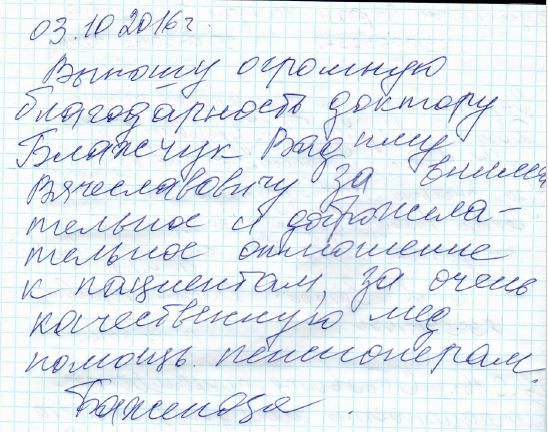 03.10.2016 г.
Выношу огромную
благодарность доктору
Блажчук Вадиму
Вячеславовичу за внима
тельное и доброжела-
тельное отношение
к пациентам, за очень
качественную мед.
помощь пенсионерам.
Баженова.